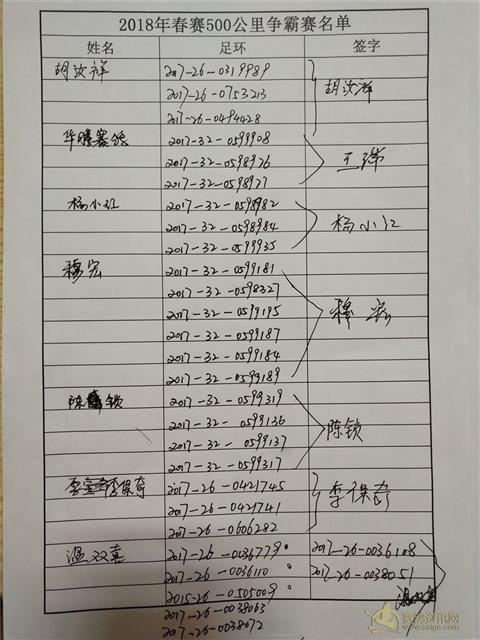 2018年春赛500公里争霸赛名单
姓名 足环 签字
胡汝祥 2017-26-0319989
2017-26-0753213 胡汝祥
2017-26-0494428
2017-32-0599908
2017-32-0598926 王瑞
2017-32-0598927
杨小红 2017-32-0598982
2017-32-0598984 杨小红
2017-32-0599935
穆宏 2017-32-0599181
2017-32-0598327
2017-32-0599195 穆宏
2017-32-0599187
2017-32-0599184
2017-32-0599189
陈锁 2017-32-0599319
2017-32-0599136
2017-32-0599137 陈锁
2017-32-0599317
李保奇 2017-26-0421745
2017-26-0421741 李保奇
2017-26-0606282
温双喜 2017-26-0036779 2017-26-0036108
2017-26-0036110 2017-26-0038051
2015-26-0505009 温双喜
2017-26-0038063
2017-26-0038072